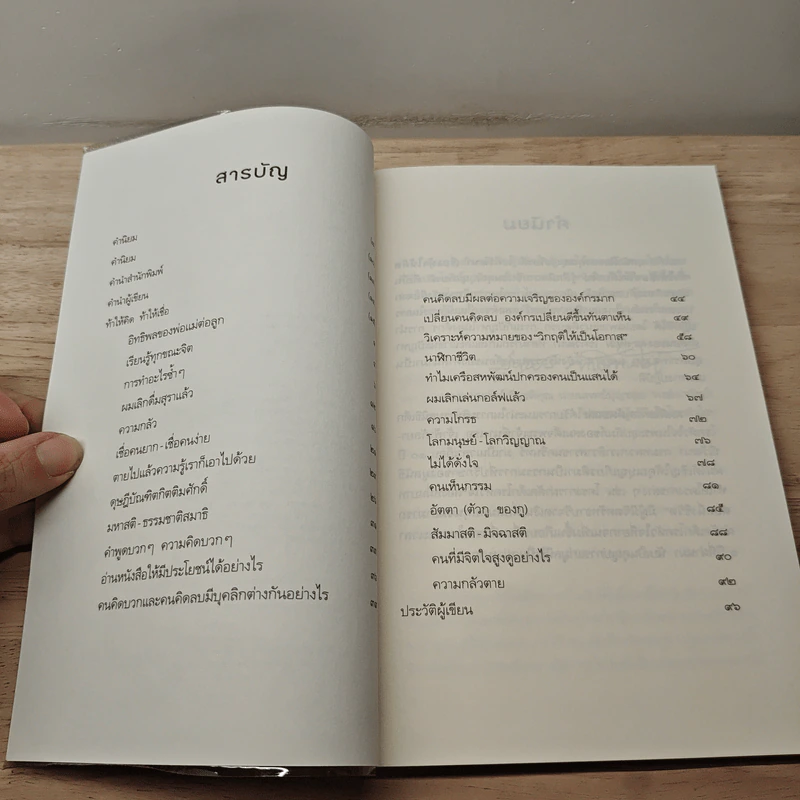 สารบัญ
คำนิยม
คำนิยม
คำนำสำนักพิมพ์
คำนำผู้เขียน
ทำให้คิด ทำให้เชื่อ
อิทธิพลของพ่อแม่ต่อลูก
เรียนรู้ทุกขณะจิต
การทำอะไรซ้ำๆ
ผมเลิกดื่มสุราแล้ว
ความกลัว
เชื่อคนยาก - เชื่อคนง่าย
ตายไปแล้วความรู้เราก็เอาไปด้วย
ดุษฎีบัณฑิตกิตติมศักดิ์
มหาสติ - ธรรมชาติสมาธิ
คำพูดบวกๆ ความคิดบวกๆ
อ่านหนังสือให้มีประโยชน์ได้อย่างไร
คนคิดบวกและคนคิดลบมีบุคลิกต่างกันอย่างไร
คนคิดลบมีผลต่อความเจริญขององค์กรมาก ๔๔
เปลี่ยนคนคิดลบ องค์กรเปลี่ยนดีขึ้นทันตาเห็น ๔๙
วิเคราะห์ความหมายของ "วิกฤติให้เป็นโอกาส" ๕๘
นาฬิกาชีวิต ๖๐
ทำไมเครือสหพัฒน์ปกครองคนเป็นแสนได้ ๖๔
ผมเลิกเล่นกอล์ฟแล้ว ๖๗
ความโกรธ ๗๒
โลกมนุษย์ - โลกวิญญาณ ๗๖
ไม่ได้ตั้งใจ ๗๘
คนเห็นกรรม ๘๑
อัตตา (ตัวกู ของกู) ๘๕
สัมมาสติ - มิจฉาสติ ๘๘
คนที่มีจิตใจสูงดูอย่างไร ๙๐
ความกลัวตาย ๙๒
ประวัติผู้เขียน ๙๖